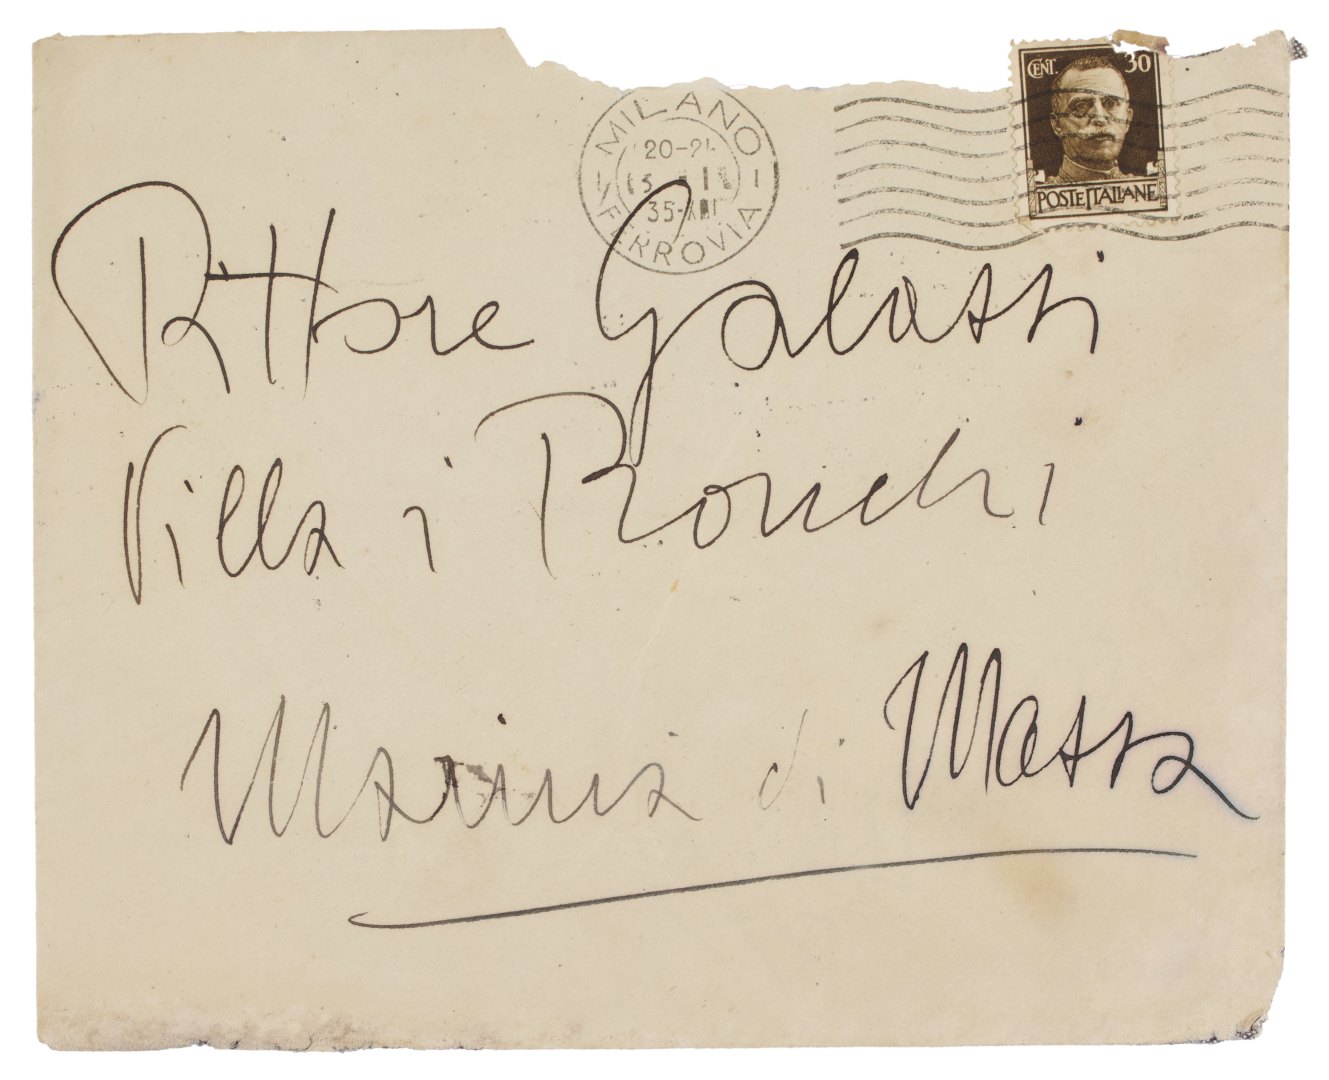 MILANO
20-21
35-XIII
FERROVIA
CENT. 30
POSTE ITALIANE
Pittore Galassi
Villa i Ronchi
Marina di Massa